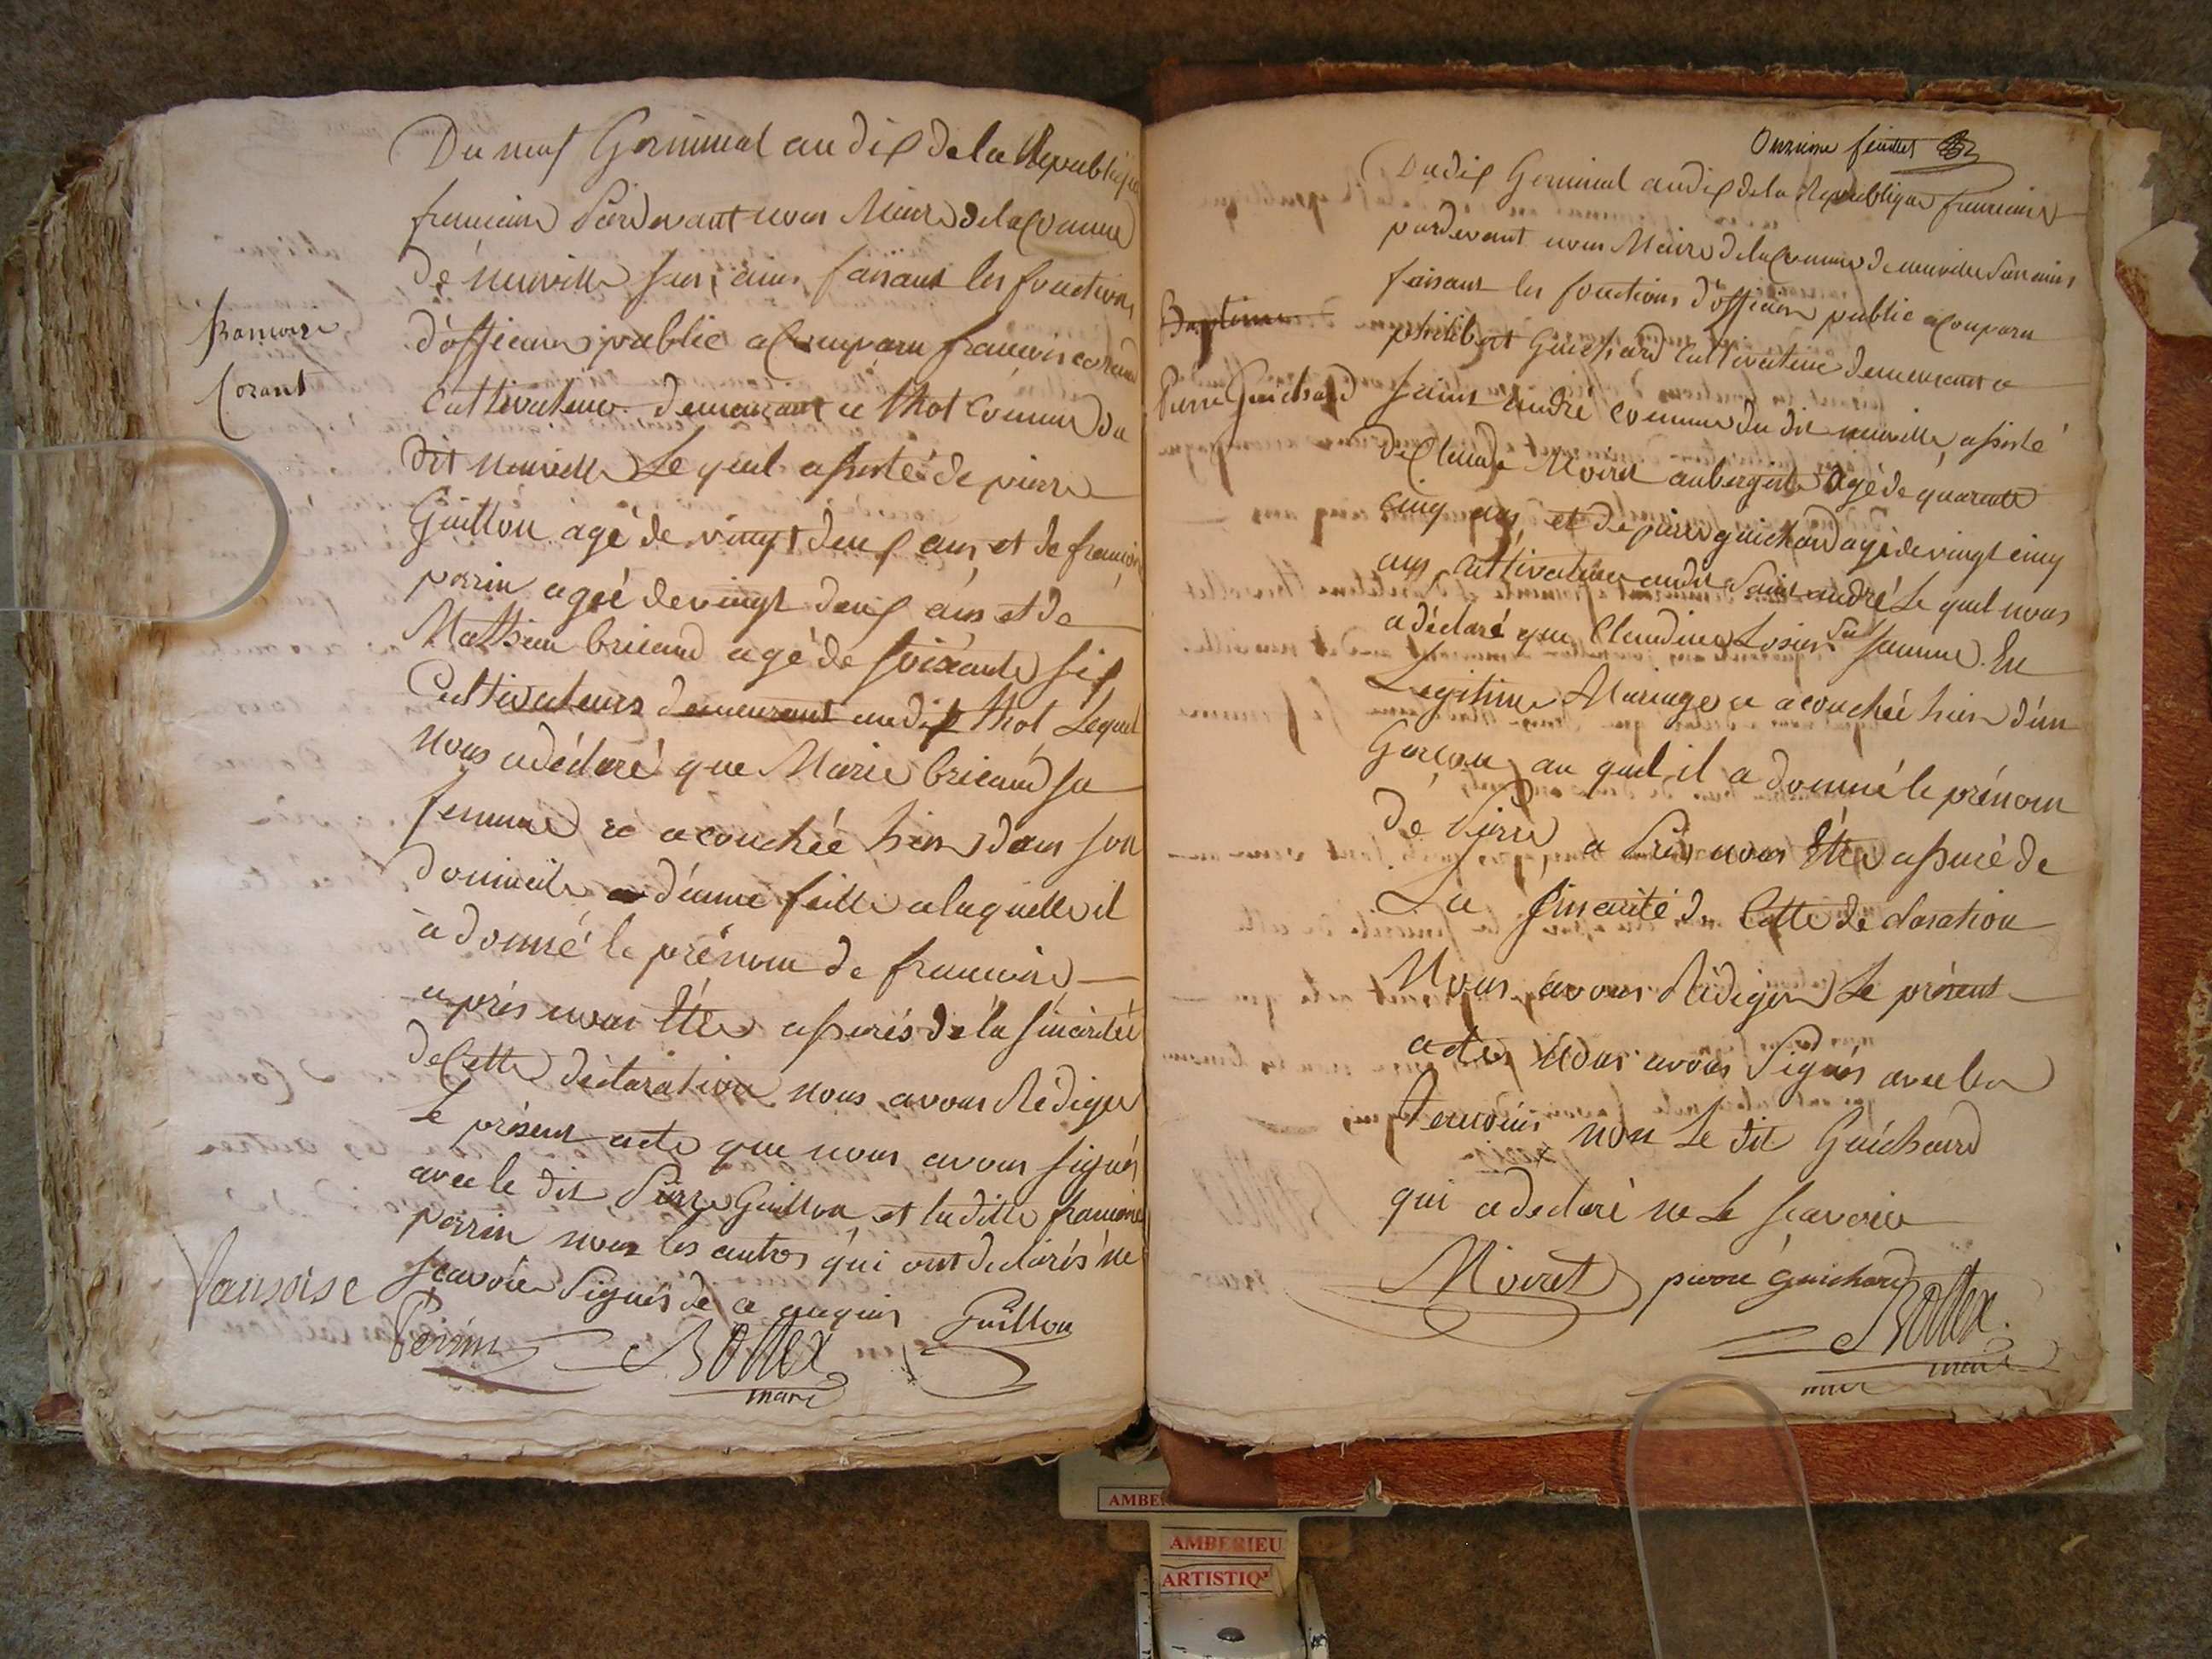 Du neuf Germinal an dix de la Republique
francaise Pardevant nous Maire de la Comune
de neuville sur ains faisant les fonctions
d'officier public a Comparu francois corant
Cultivateur demeurant a thol Comune du
dit neuville Le quel assisté de pierre
Guillon agé de vingt deux ans et de francoise
perrin agée de vingt deux ans et de
Mathieu bricaud agé de soixante six
Cultivateurs demeurant audit thol Lequel
nous a déclaré que Marie bricaud sa
femme a acouchée hier dans son
domicile d'unne fille a laquelle il
à donné le prénom de francoise
aprés nous Etre assurés de la sincerité
de Cette déclaration nous avons Rédiger
Le présent acte que nous avons signés
avec le dit Pierre Guillon et la ditte francoise
perrin non les autres qui ont declarés ne
scavoir Signés de ce enquis
francoise
Corant
fansoise
Perrin
Bottex
maire
Guillon
Onzieme feuillet
Du dix Germinal an dix de la Republique francaise
pardevant nous Maire de la Comune de neuville sur ains
faisant les fonctions d'officier public a Comparu
philibert Guichard Cultivateur demeurant a
saint andré comune du dit neuville assisté
de Claude Moiret aubergiste agé de quarante
cinq ans et de pierre guichard agé de vingt cinq
ans Cultivateur audit Saint andré Le quel nous
a déclaré que Claudine Losier sa femme En
Legitime Mariage a acouchée hier d'un
Garcon au quel il a donné le prénom
de Pierre a Prés nous Etre assuré de
La sincerité de Cette declaration
Nous avons Rédiger Le présent
acte Nous avons Signés avec les
Temoins non Le dit Guichard
qui a declaré ne Le scavoir
Baptime
Pierre Guichard
Moiret
pierre guichard
Bottex
maire
AMBERIEU
ARTISTIQ